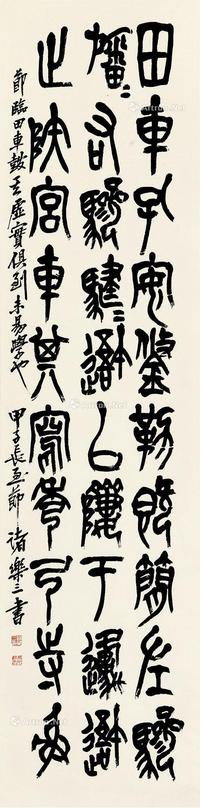 田車孔安鋚勒既簡左驂
旛〻右驂騝〻𨖍以隮于邍𨖍
止陕宮車其寫秀弓寺射
節臨田車鼓文虛實俱到未易學也
甲子長至節 諸樂三書